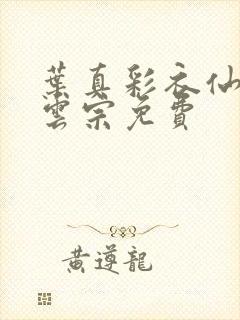 葉真彩衣仙
雲宗免費
黃遵龍